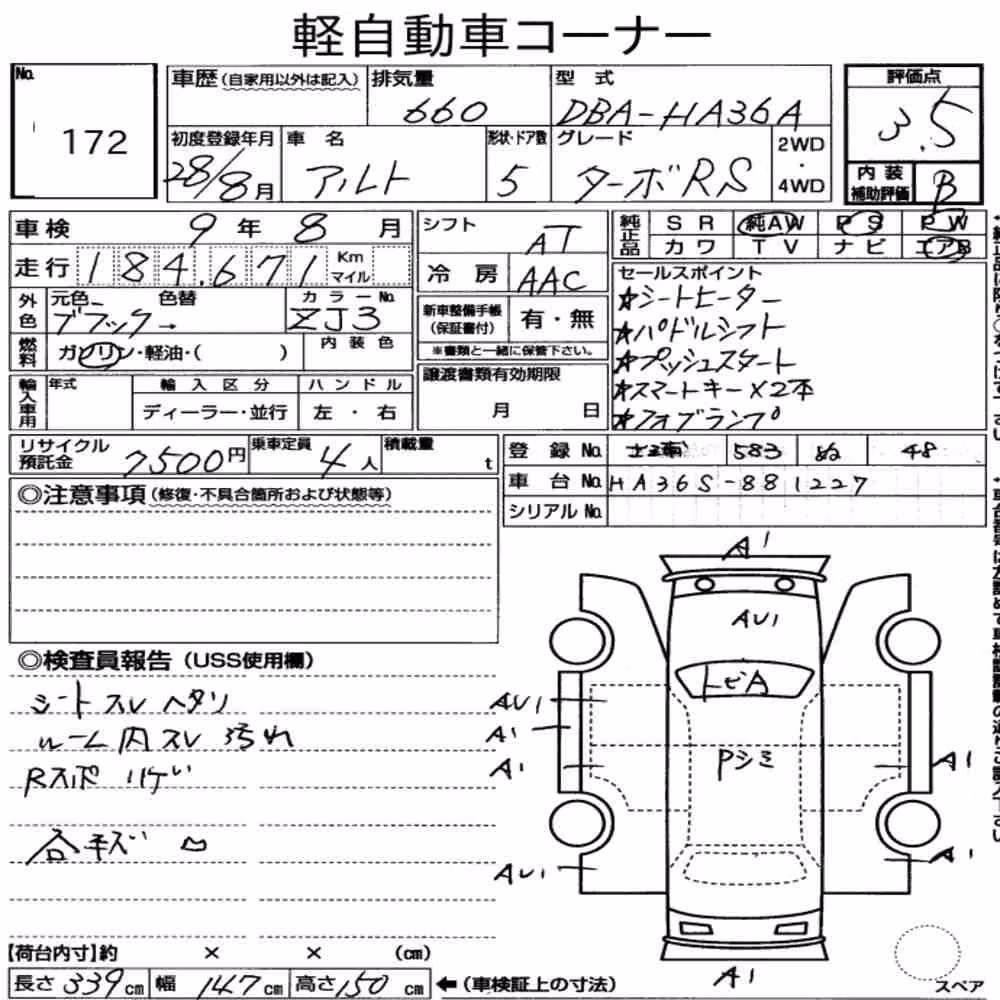 軽自動車コーナー
No. 172
車歴(自家用以外は記入)
排気量 660
型式 DBA-HA36A
評価点 3.5
初度登録年月 28/8月
車名 アルト
形状・ドア数 5
グレード ターボRS
2WD・4WD
内装補助評価 B
車検 9年 8月
シフト AT
純正品 SR 純AW PS PW
カワ TV ナビ エアB
走行 184,671 Km マイル
冷房 AAC
セールスポイント
☆シートヒーター
☆パドルシフト
☆プッシュスタート
☆スマートキー×2本
☆フォグランプ
外色 元色 色替 カラーNo.
ブラック→ ZJ3
新車整備手帳(保証書付) 有・無
※書類と一緒に保管下さい。
燃料 ガソリン・軽油・( )
内装色
譲渡書類有効期限
月 日
輸入車用 年式 輸入区分 ハンドル
ディーラー・並行 左・右
リサイクル預託金 7500円
乗車定員 4人
積載量 t
登録No. 583 ぬ 48
車台No. HA36S-881227
シリアルNo.
◎注意事項(修復・不具合箇所および状態等)
◎検査員報告(USS使用欄)
シートスレ ヘタリ
ルーム内スレ 汚れ
Rスポ ハゲ
各キズ 凹
A1
AU1
トビA
Pシミ
AU1
A1
A1
A1
A1
AU1
A1
【荷台内寸】約 × × (cm)
長さ 339cm 幅 147cm 高さ 150cm
←(車検証上の寸法)
スペア